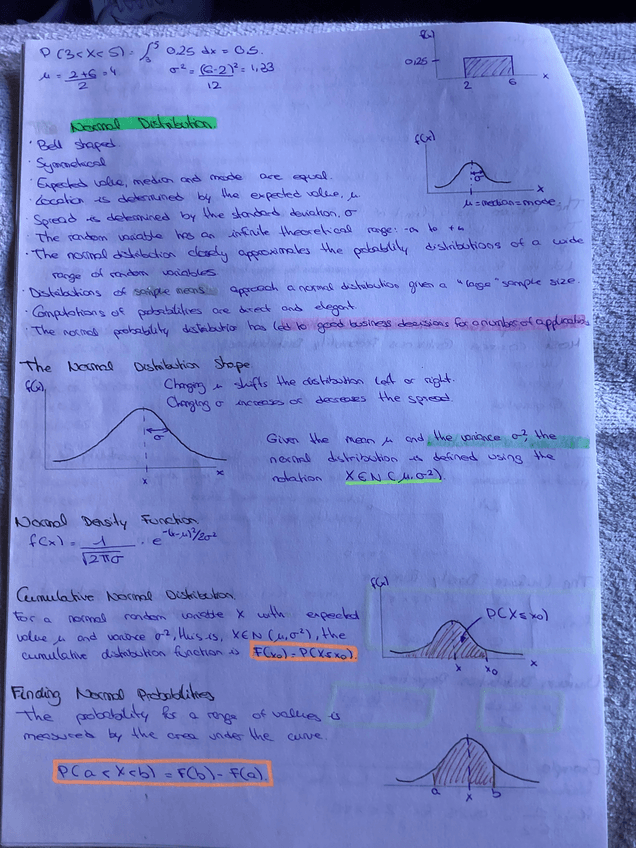 P(3<X<5) = ∫₃⁵ 0,25 dx = 0,5.
μ = (2+6)/2 = 4    σ² = (6-2)²/12 = 1,33
f(x)
0,25
2 6 x
Normal Distribution.
· Bell shaped
· Symmetrical
· Expected value, median and mode are equal.
· Location is determined by the expected value, μ
· Spread is determined by the standard deviation, σ
· The random variable has an infinite theoretical range: -∞ to +∞
f(x)
σ
x
μ=median=mode
· The normal distribution closely approximates the probability distributions of a wide
range of random variables
· Distributions of sample means approach a normal distribution given a "large" sample size.
· Computations of probabilities are direct and elegant.
· The normal probability distribution has led to good business decisions for a number of applications
The Normal Distribution Shape
f(x)
σ
x
x
Changing μ shifts the distribution left or right.
Changing σ increases or decreases the spread.
Given the mean μ and the variance σ², the
normal distribution is defined using the
notation X∈N(μ,σ²)
Normal Density Function
f(x) = 1/√2πσ · e^-(x-μ)²/2σ²
Cumulative Normal Distribution
For a normal random variable X with expected
value μ and variance σ², this is, X∈N(μ,σ²), the
cumulative distribution function is F(x₀) = P(X≤x₀).
f(x)
P(X≤x₀)
x x₀ x
Finding Normal Probabilities
The probability for a range of values is
measured by the area under the curve.
P(a<X<b) = F(b) - F(a).
a x b